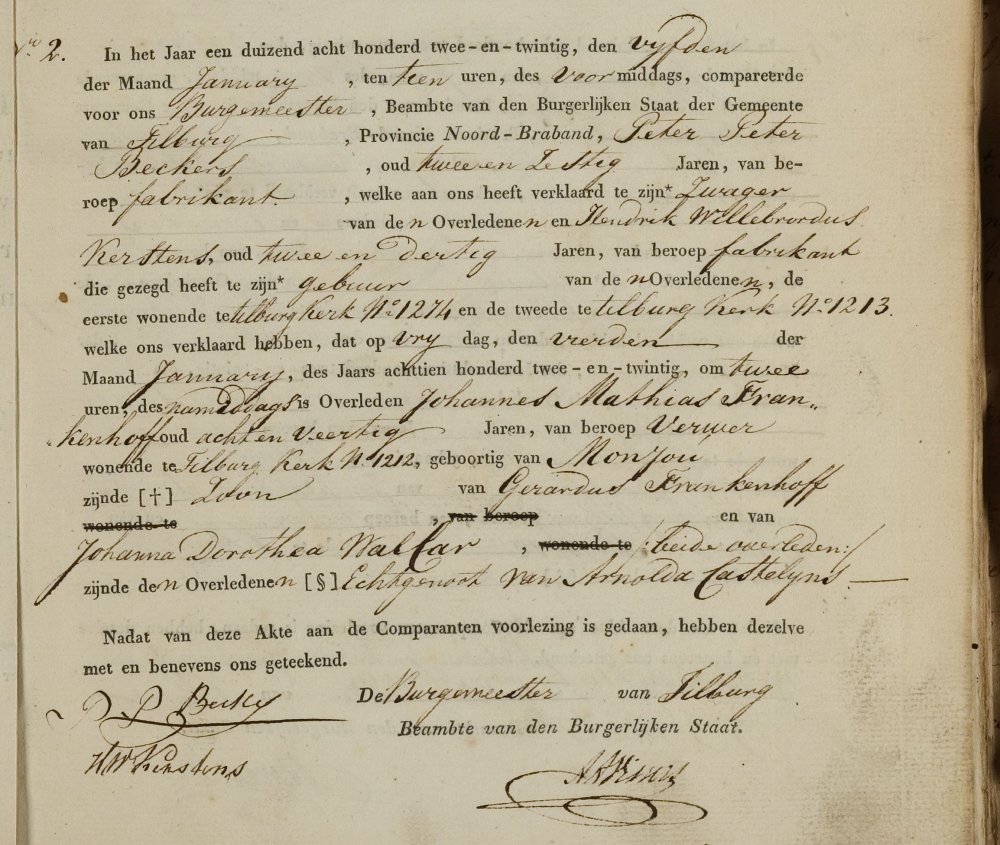 No 2. In het Jaar een duizend acht honderd twee-en-twintig, den vyfden
der Maand January , ten tien uren, des voor middags, compareerde
voor ons Burgemeester , Beambte van den Burgerlijken Staat der Gemeente
van Tilburg , Provincie Noord-Braband, Peter Peter
Beckers , oud twee en Zestig Jaren, van be-
roep fabrikant. , welke aan ons heeft verklaard te zijn* Zwager
van de n Overledene n en Hendrik Willebrordus
Kerstens, oud twee en dertig Jaren, van beroep fabrikant
die gezegd heeft te zijn* gebuur van de n Overledene n, de
eerste wonende te tilburg Kerk No 1274 en de tweede te tilburg Kerk No 1213.
welke ons verklaard hebben, dat op vry dag, den vierden der
Maand January, des Jaars achttien honderd twee-en-twintig, om twee
uren, des namiddags is Overleden Johannes Mathias Fran„
„kenhoff oud acht en Veertig Jaren, van beroep Verwer
wonende te Tilburg Kerk No 1212, geboortig van Monjou
zijnde [†] Zoon van Gerardus Frankenhoff
wonende te , van beroep en van
Johanna Dorothea Wallar , wonende te /:beide overleden:/
zijnde de n Overledene n [§] Echtgenoot van Arnolda Castelyns.
Nadat van deze Akte aan de Comparanten voorlezing is gedaan, hebben dezelve
met en benevens ons geteekend.
P P Beckers De Burgemeester van Tilburg
Beambte van den Burgerlijken Staat.
HW Kerstens